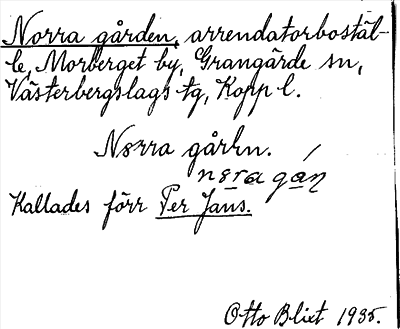 Norra gården, arrendatorbostäl-
le, Morberget by, Grangärde sn,
Västerbergslags tg, Kopp l.
Norra gårln.
Kallades förr Per Jans.
Otto Blixt 1935.